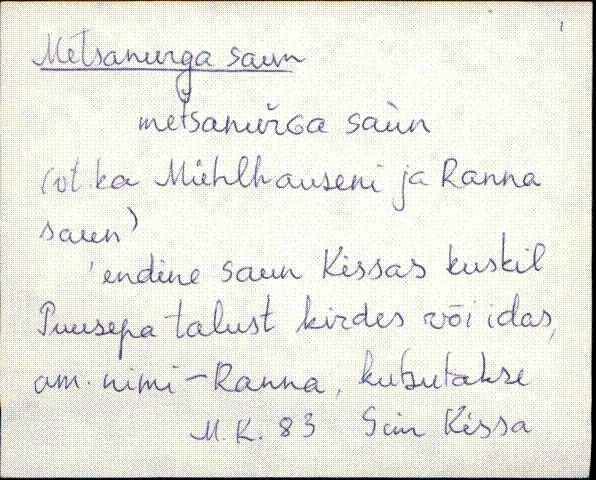 Metsanurga saun
metsanŭrGa saùn
(vt. ka Mühlhauseni ja Ranna
saun)
'endine saun Kissas kuskil
Puusepa talust kirdes või idas,
am. nimi – Ranna, kutsutakse
M.K. 83 Sim Kissa